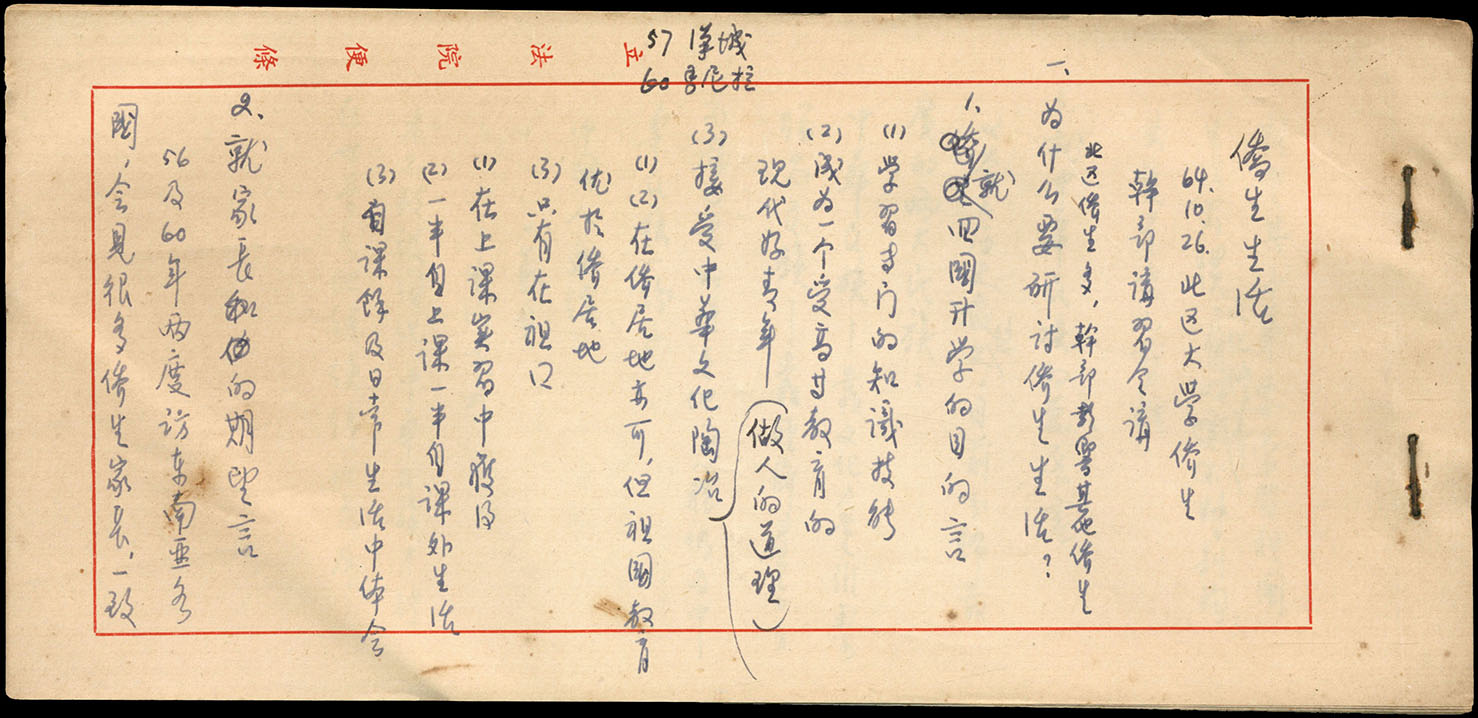 立法院便條
57 漢城
60 馬尼拉
僑生生活
64.10.26.北区大学僑生
幹部講習会講
一、为什么要研讨僑生生活？
北区僑生多，幹部影響其他僑生
1、就回國升学的目的言
(1)学習专门的知識技能
(2)成为一个受高等教育的
现代好青年（做人的道理）
(3)接受中華文化陶冶
(1)(2)在僑居地亦可，但祖國教育
优於僑居地
(3)只有在祖囗
(1)在上課实習中獲得
(2)一半自上課一半自課外生活
(3)自課餘及日常生活中体会
2、就家長的期望言
56及60年两度訪东南亚各
國，会見很多僑生家長，一致